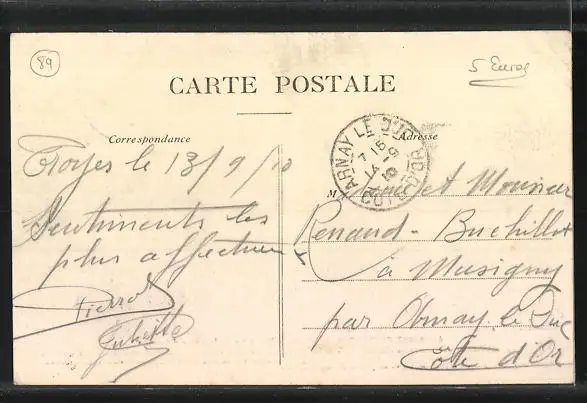 89
5 Euros
CARTE POSTALE
Correspondance
Adresse
ARNAY LE DUC
7 15
14 - 9
10
COTE D'OR
Troyes le 13/9/10
Sentiments les
plus affectueux
Pierre
Juliette
M
et Monsieur
Renaud - Buchillot
à Musigny
par Arnay le Duc
Côte d'Or